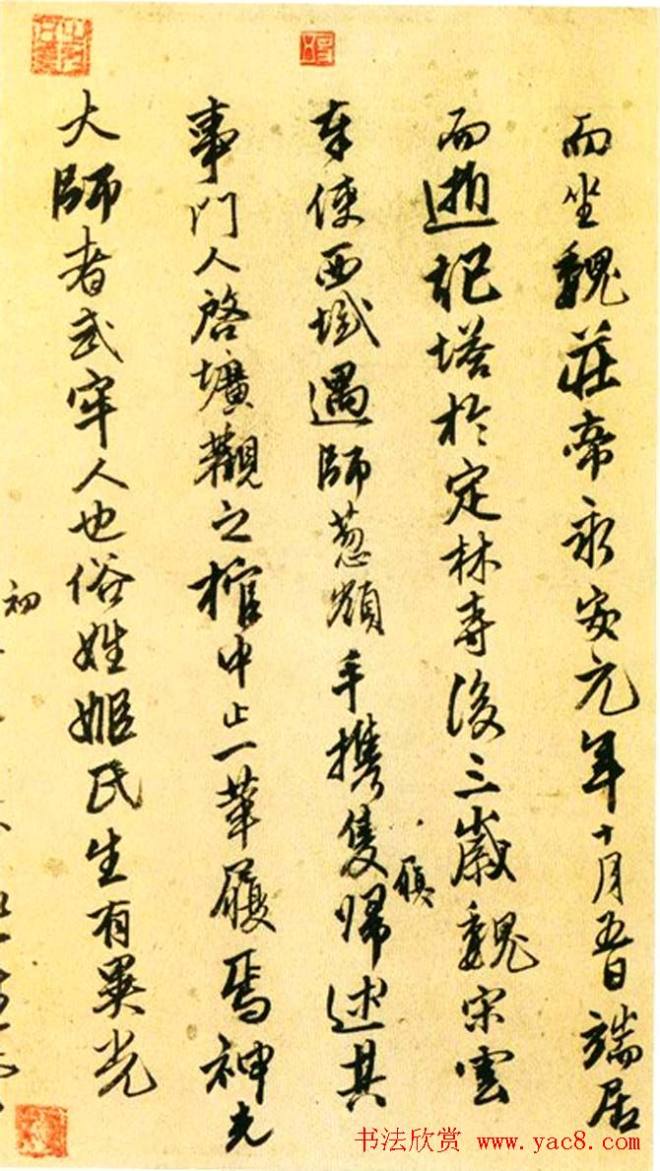 而坐魏莊帝永安元年十月五日端居
而逝起塔於定林寺後三歲魏宋雲
奉使西域遇師葱嶺手携隻歸述其
履
事門人啓壙觀之棺中止一革履焉神光
大師者武牢人也俗姓姬氏生有異光
初
书法欣赏 www.yac8.com